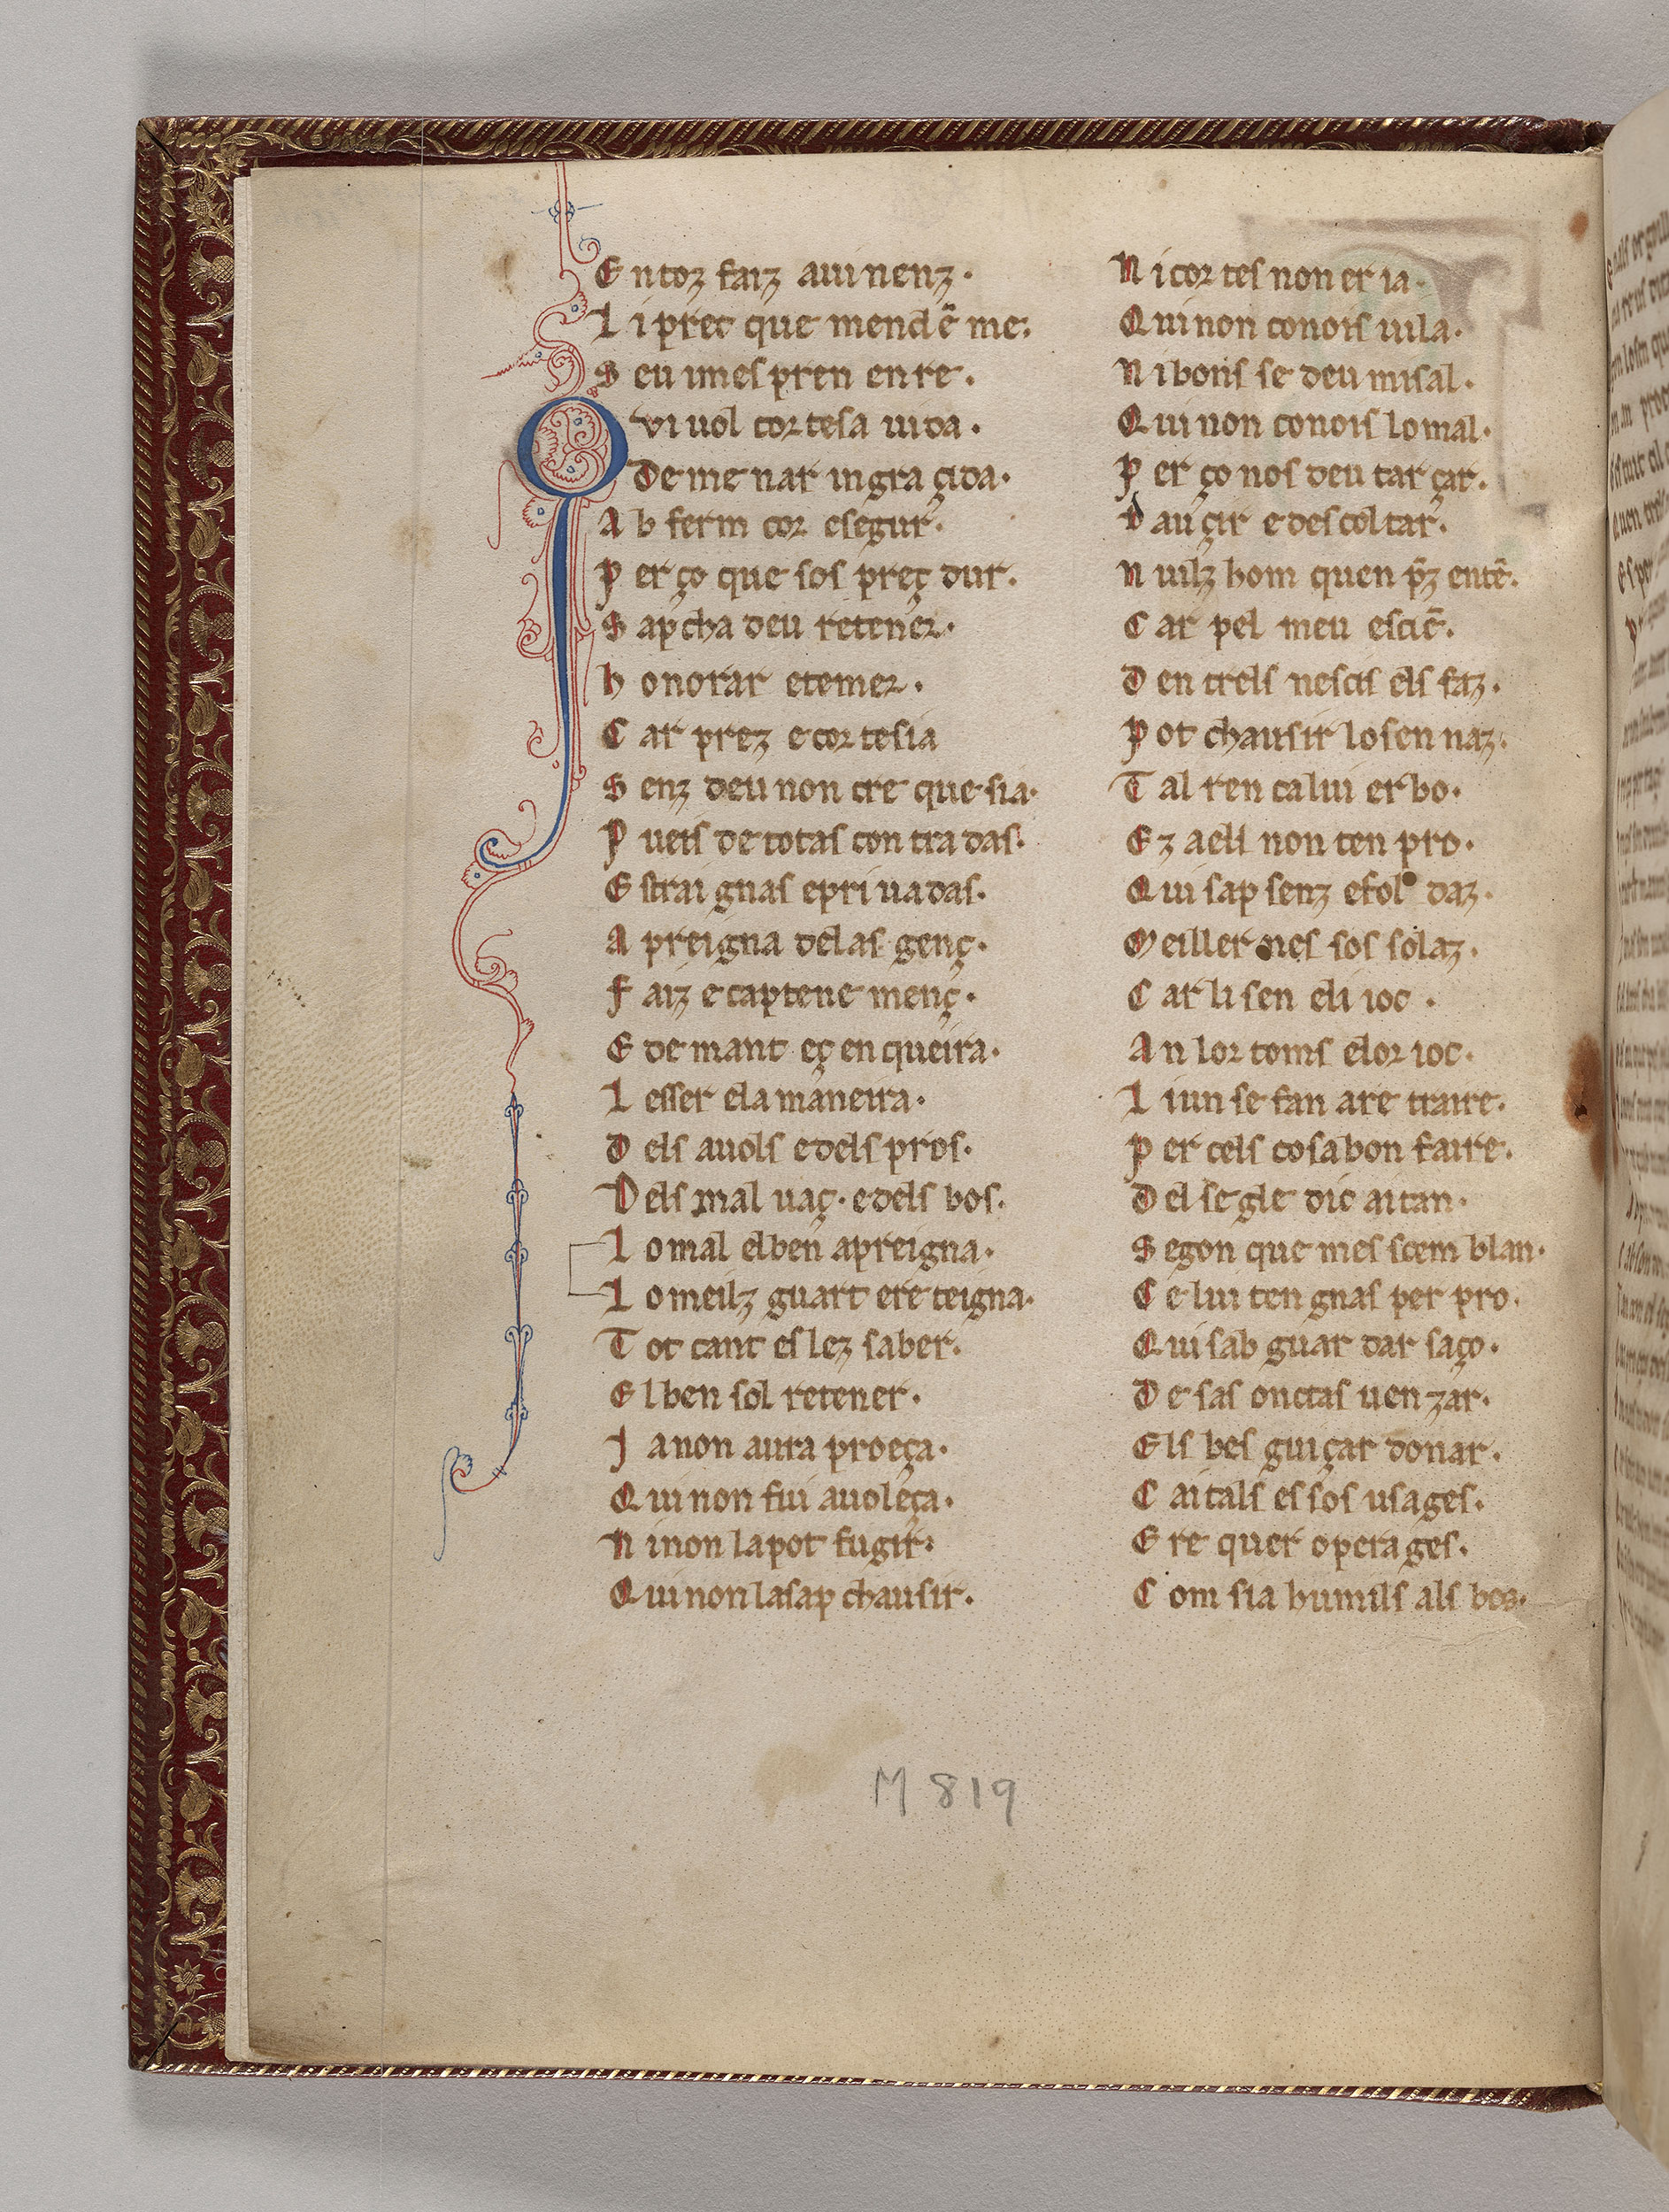 E ntoz faiz auinenz·
L i prec que mendē me·
S eu imespren enre·
Q vi uol cortesa uida·
de me nar ingra çida·
A b ferm cor esegur·
P er ço que sos preç dur·
S apcha deu retener·
h onorar etemer·
C ar prez e cortesia
S enz deu non cre que sia·
P ueis de totas contradas·
E strai gnas epri uadas·
A preigna delas genç·
F aiz e captene menç·
E de mant eç en queira·
L esser ela maneira·
D els auols e dels pros·
D els mal uaç· e dels bos·
L o mal el ben apreigna·
L o meilz guart ere teigna·
T ot cant es lez saber·
E l ben sol retener·
J a non aura proeça·
Q ui non fui auoleça·
N i non la pot fugir·
Q ui non la sap chausir·
N i cortes non er ia·
Q ui non conois uila·
N i bons se deu misal·
Q ui non conois lo mal·
P er ço nos deu tar çar·
D au çir e des coltar·
N uilz hom quen p̄z entē·
C ar pel meu esciē·
D en trels nescis els faz·
P ot chausir lo sen naz·
T al ren ca lui er bo·
E z aell non ten pro·
Q ui sap senz e fol daz·
M eiller nes sos solaz·
C ar li sen eli ioc ·
A n lor toms elor ioc·
L iun se fan are traire·
P er cels cosabon faire·
D el se gle dic aitan·
S egon que mes scem blan·
C e lui ten gnas per pro·
Q ui sab guar dar saço·
D e sas onctas uen zar·
E ls bes gui çar donar·
C aitals es sos usages·
E re quer opera ges·
C om sia humils als bos·
M 819